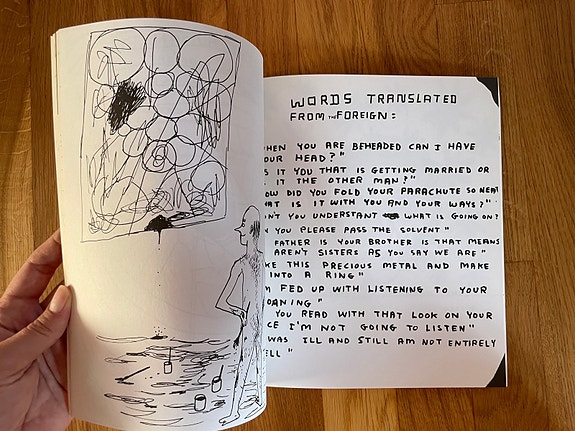 WORDS TRANSLATED
FROM THE FOREIGN:
HEN YOU ARE BEHEADED CAN I HAVE
OUR HEAD?"
S IT YOU THAT IS GETTING MARRIED OR
IT THE OTHER MAN?"
OW DID YOU FOLD YOUR PARACHUTE SO NEAT
AT IS IT WITH YOU AND YOUR WAYS?"
N'T YOU UNDERSTAND WHAT IS GOING ON?
YOU PLEASE PASS THE SOLVENT"
FATHER IS YOUR BROTHER IS THAT MEANS
AREN'T SISTERS AS YOU SAY WE ARE"
KE THIS PRECIOUS METAL AND MAKE
INTO A RING"
FED UP WITH LISTENING TO YOUR
OANING"
YOU READ WITH THAT LOOK ON YOUR
CE I'M NOT GOING TO LISTEN"
WAS ILL AND STILL AM NOT ENTIRELY
ELL"